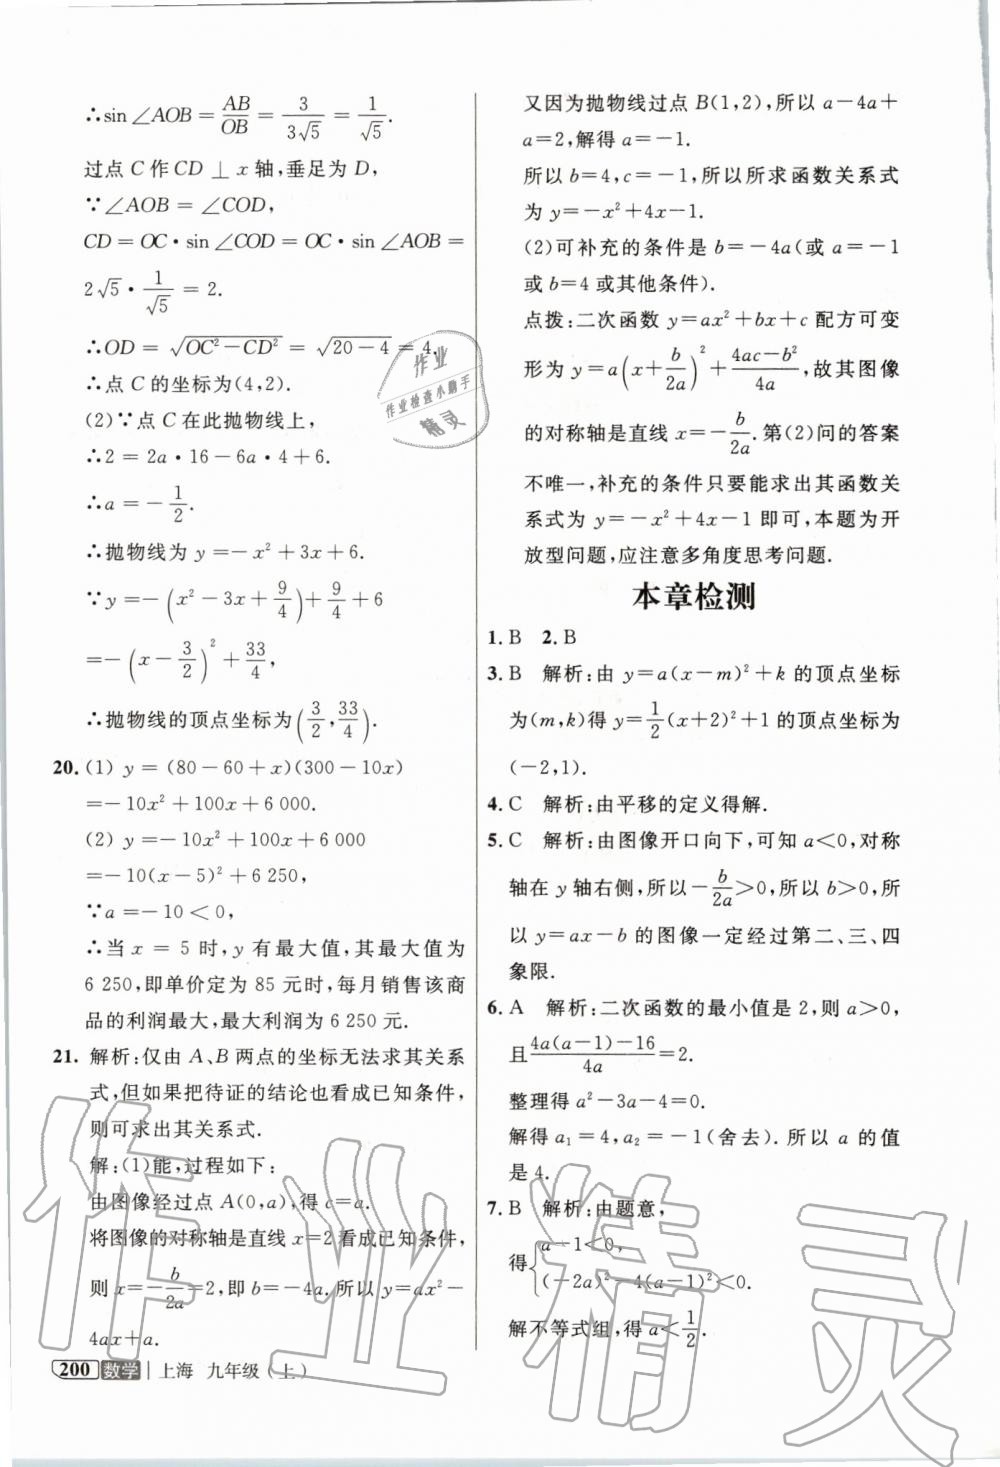 ∴sin∠AOB=AB/OB=3/(3√5)=1/√5.
过点 C 作 CD⊥x 轴,垂足为 D,
∵∠AOB=∠COD,
CD=OC·sin∠COD=OC·sin∠AOB=
2√5·1/√5=2.
∴OD=√(OC²-CD²)=√(20-4)=4.
∴点 C 的坐标为(4,2).
(2)∵点 C 在此抛物线上,
∴2=2a·16-6a·4+6.
∴a=-1/2.
∴抛物线为 y=-x²+3x+6.
∵y=-(x²-3x+9/4)+9/4+6
=-(x-3/2)²+33/4,
∴抛物线的顶点坐标为(3/2,33/4).
20. (1) y=(80-60+x)(300-10x)
=-10x²+100x+6 000.
(2) y=-10x²+100x+6 000
=-10(x-5)²+6 250,
∵a=-10<0,
∴当 x=5 时,y 有最大值,其最大值为
6 250,即单价定为 85 元时,每月销售该商
品的利润最大,最大利润为 6 250 元.
21. 解析:仅由 A、B 两点的坐标无法求其关系
式,但如果把待证的结论也看成已知条件,
则可求出其关系式.
解:(1)能,过程如下:
由图像经过点 A(0,a),得 c=a.
将图像的对称轴是直线 x=2 看成已知条件,
则 x=-b/2a=2,即 b=-4a.所以 y=ax²-
4ax+a.
200 数学 上海 九年级(上)
又因为抛物线过点 B(1,2),所以 a-4a+
a=2,解得 a=-1.
所以 b=4,c=-1,所以所求函数关系式
为 y=-x²+4x-1.
(2)可补充的条件是 b=-4a(或 a=-1
或 b=4 或其他条件).
点拨:二次函数 y=ax²+bx+c 配方可变
形为 y=a(x+b/2a)²+(4ac-b²)/4a,故其图像
的对称轴是直线 x=-b/2a.第(2)问的答案
不唯一,补充的条件只要能求出其函数关
系式为 y=-x²+4x-1 即可,本题为开
放型问题,应注意多角度思考问题.
本章检测
1. B 2. B
3. B 解析:由 y=a(x-m)²+k 的顶点坐标
为(m,k)得 y=1/2(x+2)²+1 的顶点坐标为
(-2,1).
4. C 解析:由平移的定义得解.
5. C 解析:由图像开口向下,可知 a<0,对称
轴在 y 轴右侧,所以-b/2a>0,所以 b>0,所
以 y=ax-b 的图像一定经过第二、三、四
象限.
6. A 解析:二次函数的最小值是 2,则 a>0,
且(4a(a-1)-16)/4a=2.
整理得 a²-3a-4=0.
解得 a₁=4,a₂=-1(舍去).所以 a 的值
是 4.
7. B 解析:由题意,
得{a-1<0,
(-2a)²-4(a-1)²<0.
解不等式组,得 a<1/2.
作业
作业检查小助手
精灵
作业精灵